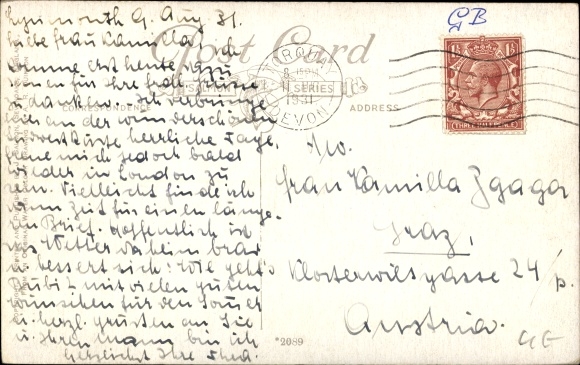 9. Aug. 31.
Liebe Frau Kamilla, ich
komme erst heute dazu
Ihnen für Ihre Grüsse
zu danken. Ich verbringe
hier an der wunderschönen
herrliche Tage,
freue mich jedoch bald
wieder in London zu
sein. Vielleicht finde ich
dann Zeit für einen länge-
ren Brief. Hoffentlich ist
das Wetter daheim brav
u. bessert sich. Wie geht's
Bubi? Mit vielen guten
Wünschen für den Sommer
u. herzl. Grüssen an Sie
u. Ihren Mann bin ich
herzlichst Ihre
Post Card
CORRESPONDENCE
ADDRESS
SERIES
TORQUAY
1931
DEVON
GB
1½
1½
THREE HALFPENCE
Frau Kamilla Zgaga
Graz,
Klosterwiesgasse 24/p.
Austria.
*2089